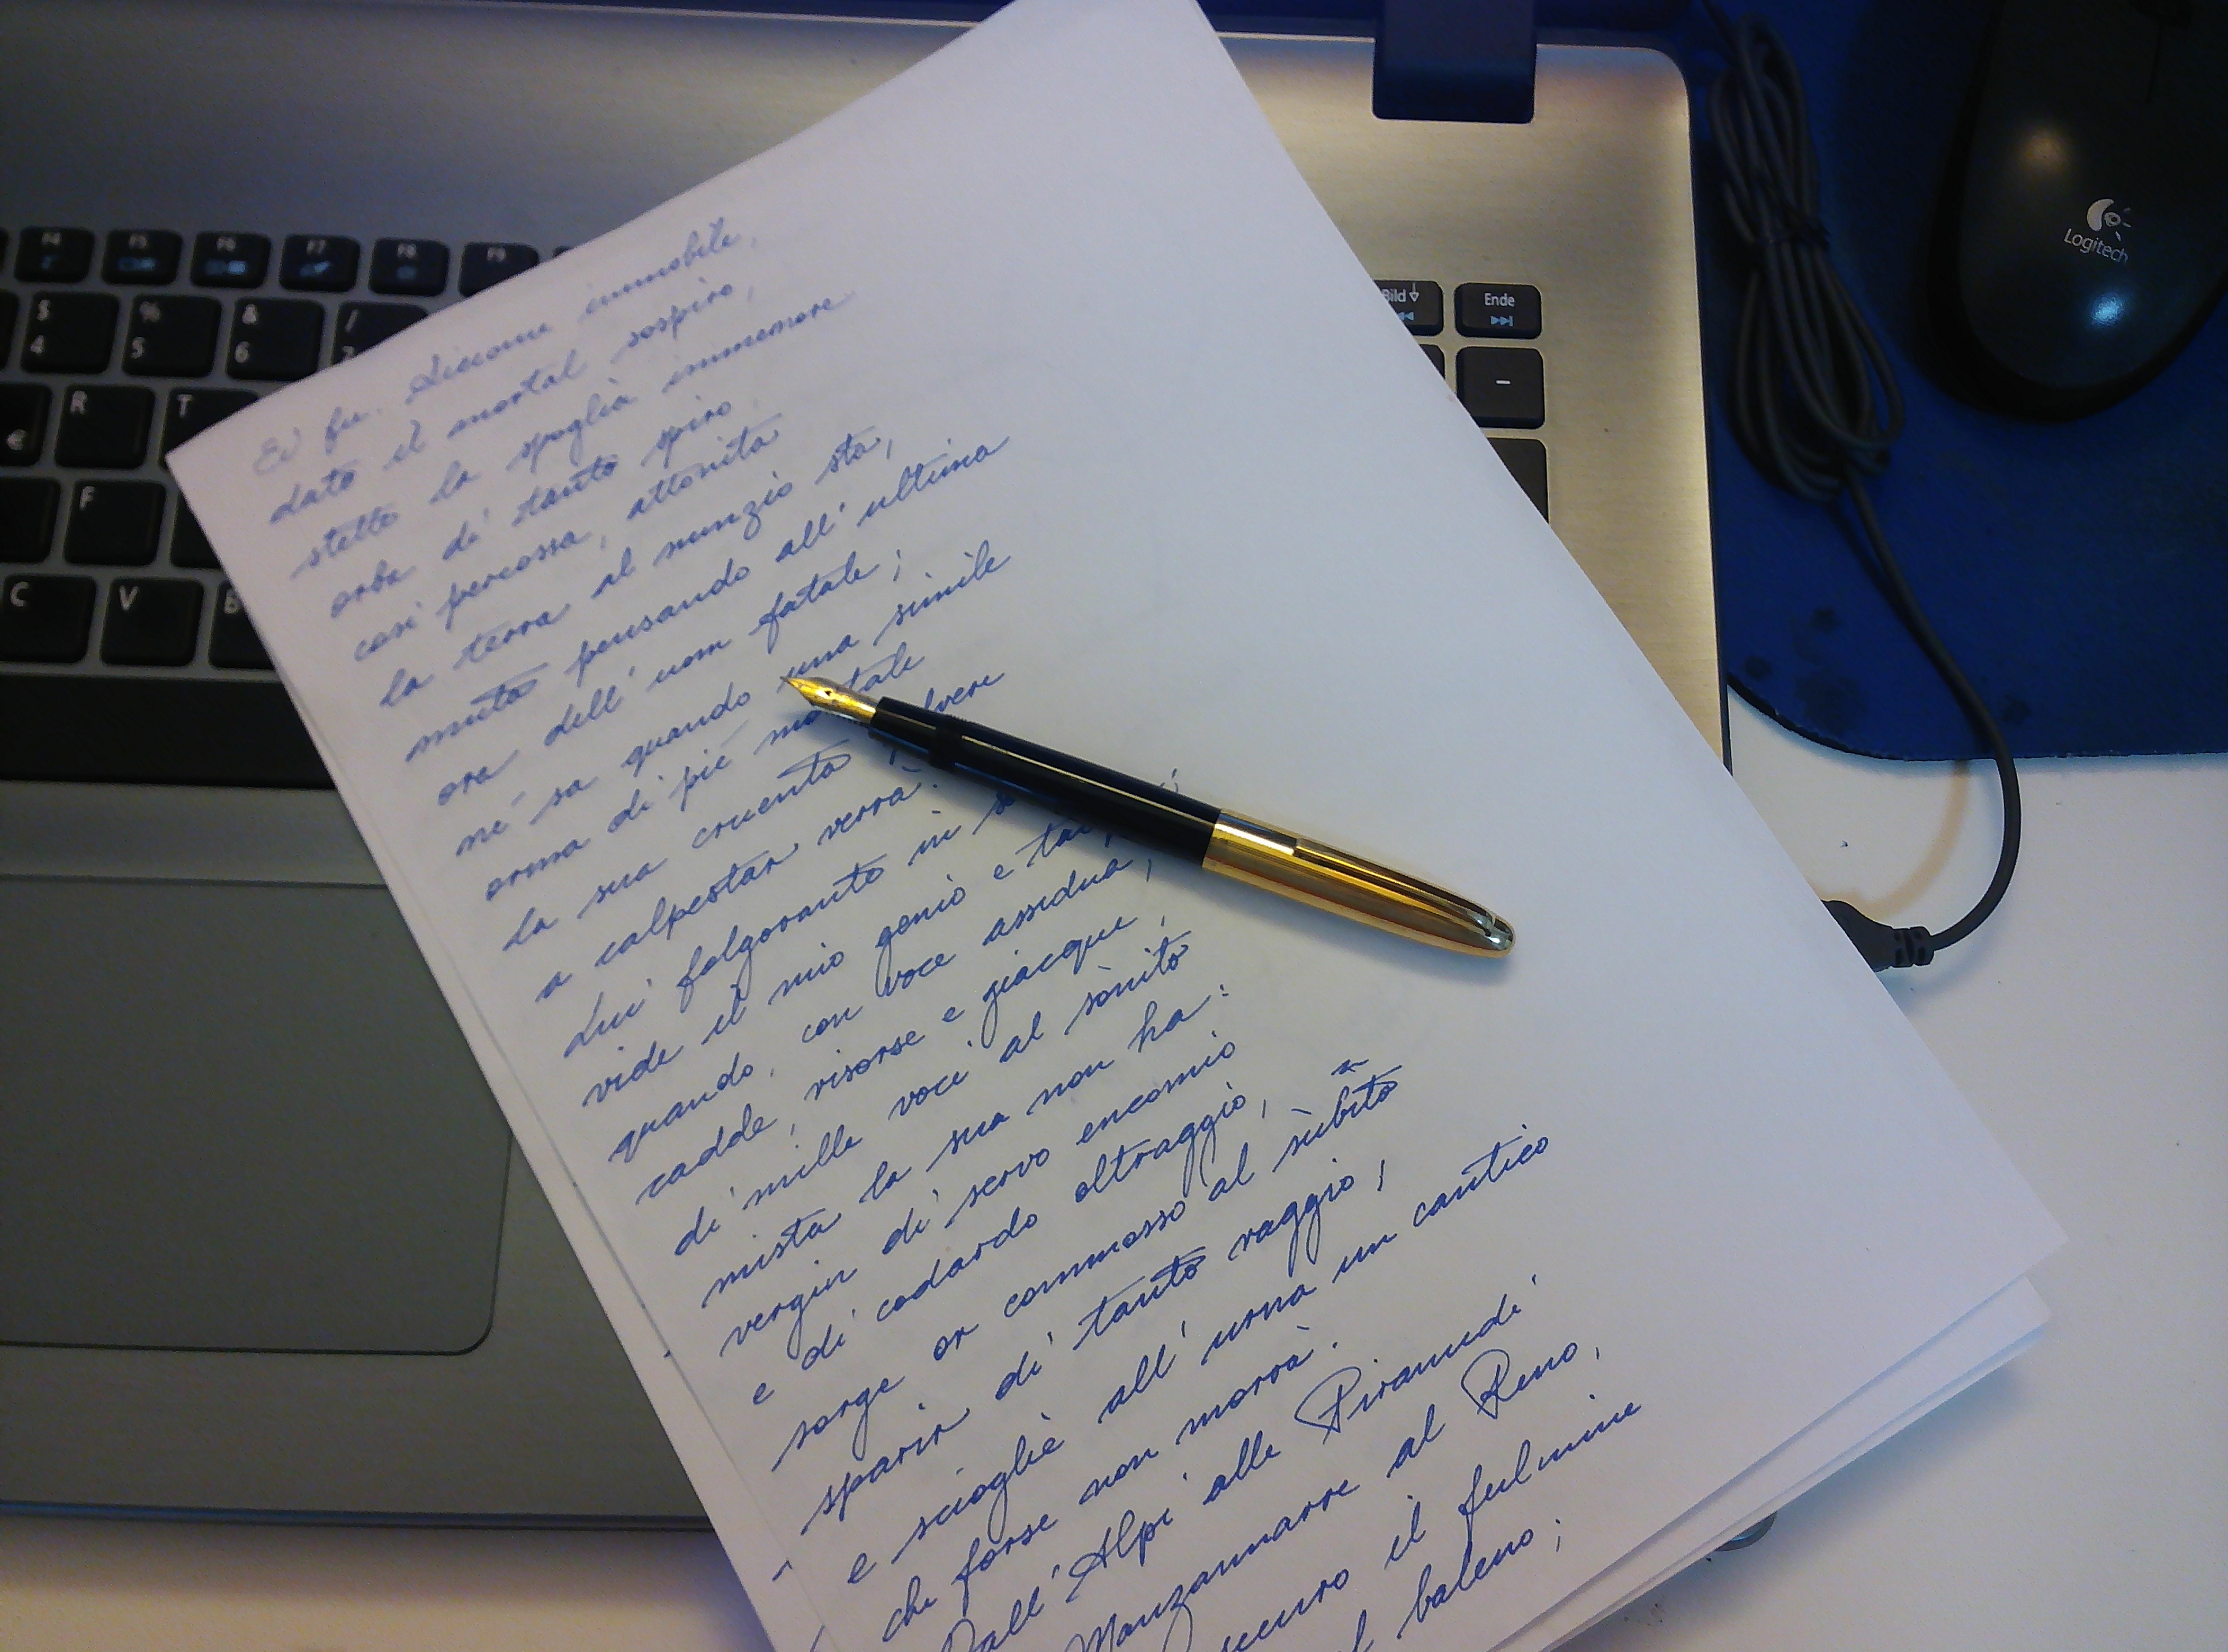 Ei fu. Siccome immobile,
dato il mortal sospiro,
stette la spoglia immemore
orba di tanto spiro,
così percossa, attonita
la terra al nunzio sta,
muta pensando all'ultima
ora dell'uom fatale;
né sa quando una simile
orma di piè mortale
la sua cruenta
a calpestar verrà.
Lui folgorante in
vide il mio genio e
quando, con voce assidua,
cadde, risorse e giacque,
di mille voci al sònito
mista la sua non ha:
vergin di servo encomio
e di codardo oltraggio,
sorge or commosso al sùbito
sparir di tanto raggio;
e scioglie all'urna un cantico
che forse non morrà.
Dall'Alpi alle Piramidi
Manzannarre al Reno,
il fulmine
baleno;
F4 F5 F6 F7 F8 F9
$ % & /
4 5 6 7
€ R T
F
C V B
Bild↓ Ende
-
Logitech